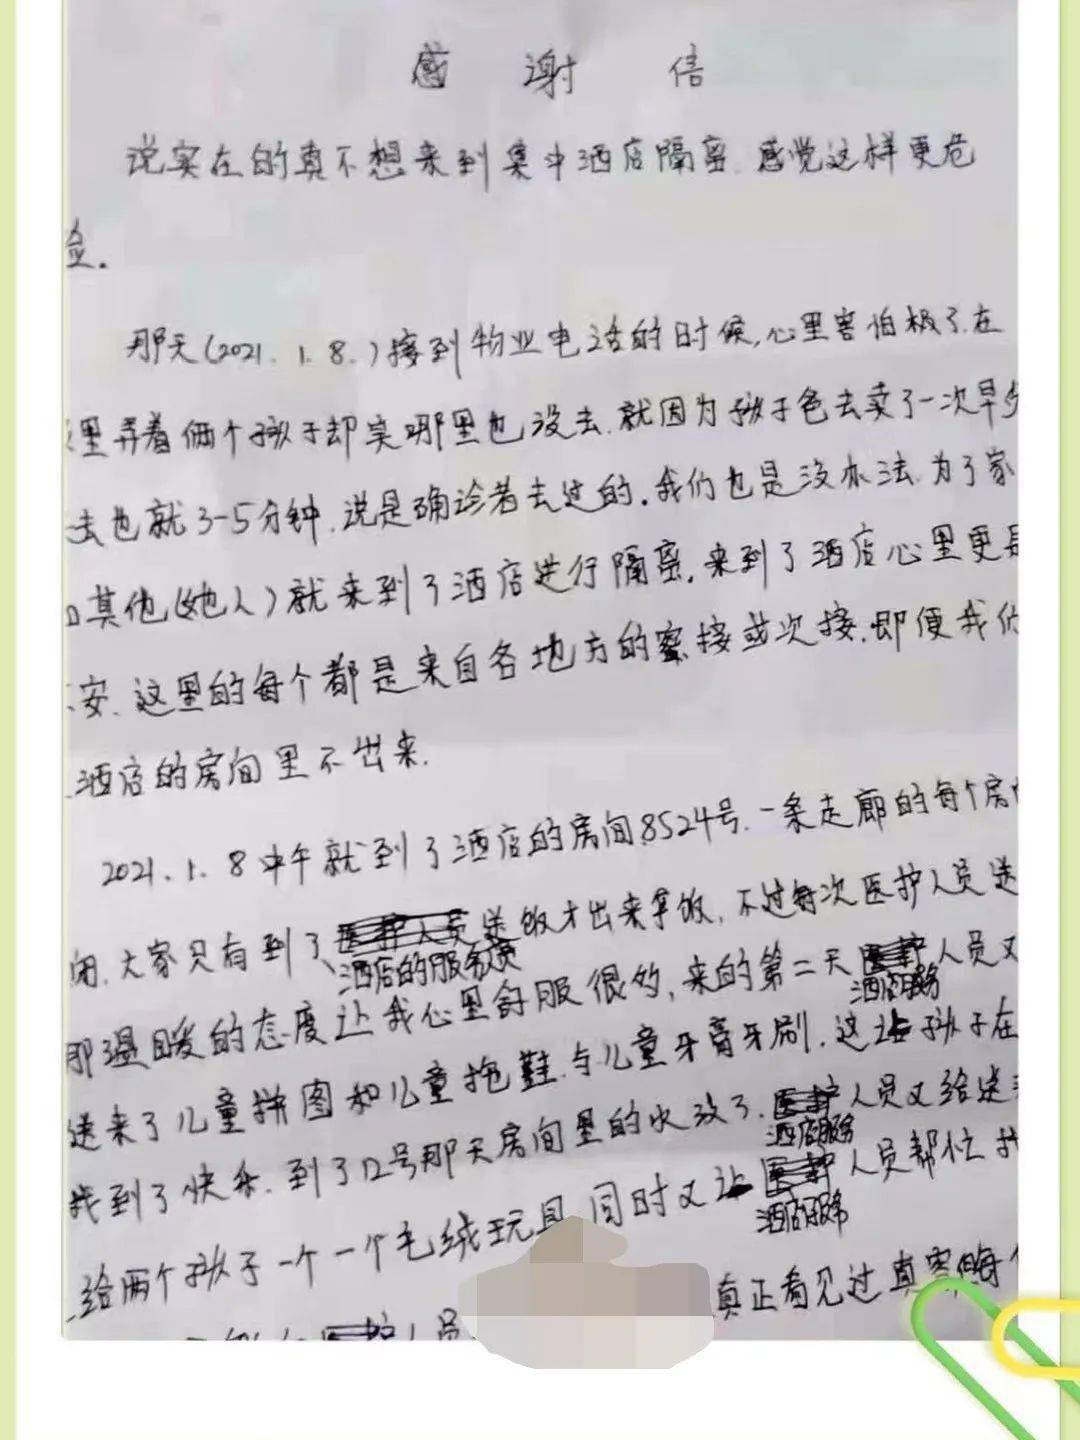 感 谢 信
说实在的真不想来到集中酒店隔离.感觉这样更危
险.
那天(2021.1.8.)接到物业电话的时候,心里害怕极了.在
里弄着俩个孩子却实哪里也没去.就因为孩子爸去卖了一次早
去也就3-5分钟.说是确诊者去过的.我们也是没办法.为了家
其他(她人)就来到了酒店进行隔离.来到了酒店心里更是
安.这里的每个都是来自各地方的密接或次接.即便我们
酒店的房间里不出来.
2021.1.8中午就到了酒店的房间8524号.一条走廊的每个房
闭.大家只有到了医护人员送饭才出来拿饭.不过每次医护人员送
酒店的服务员
那温暖的态度让我心里舒服很多,来的第二天医护人员又
酒店服务
送来了儿童拼图和儿童拖鞋.与儿童牙膏牙刷.这让孩子在
找到了快乐.到了12号那天房间里的水没了.医护人员又给送
酒店服务
给两个孩子一个一个毛绒玩具 同时又让医护人员帮忙
酒店服务
医护人员 真正看见过真